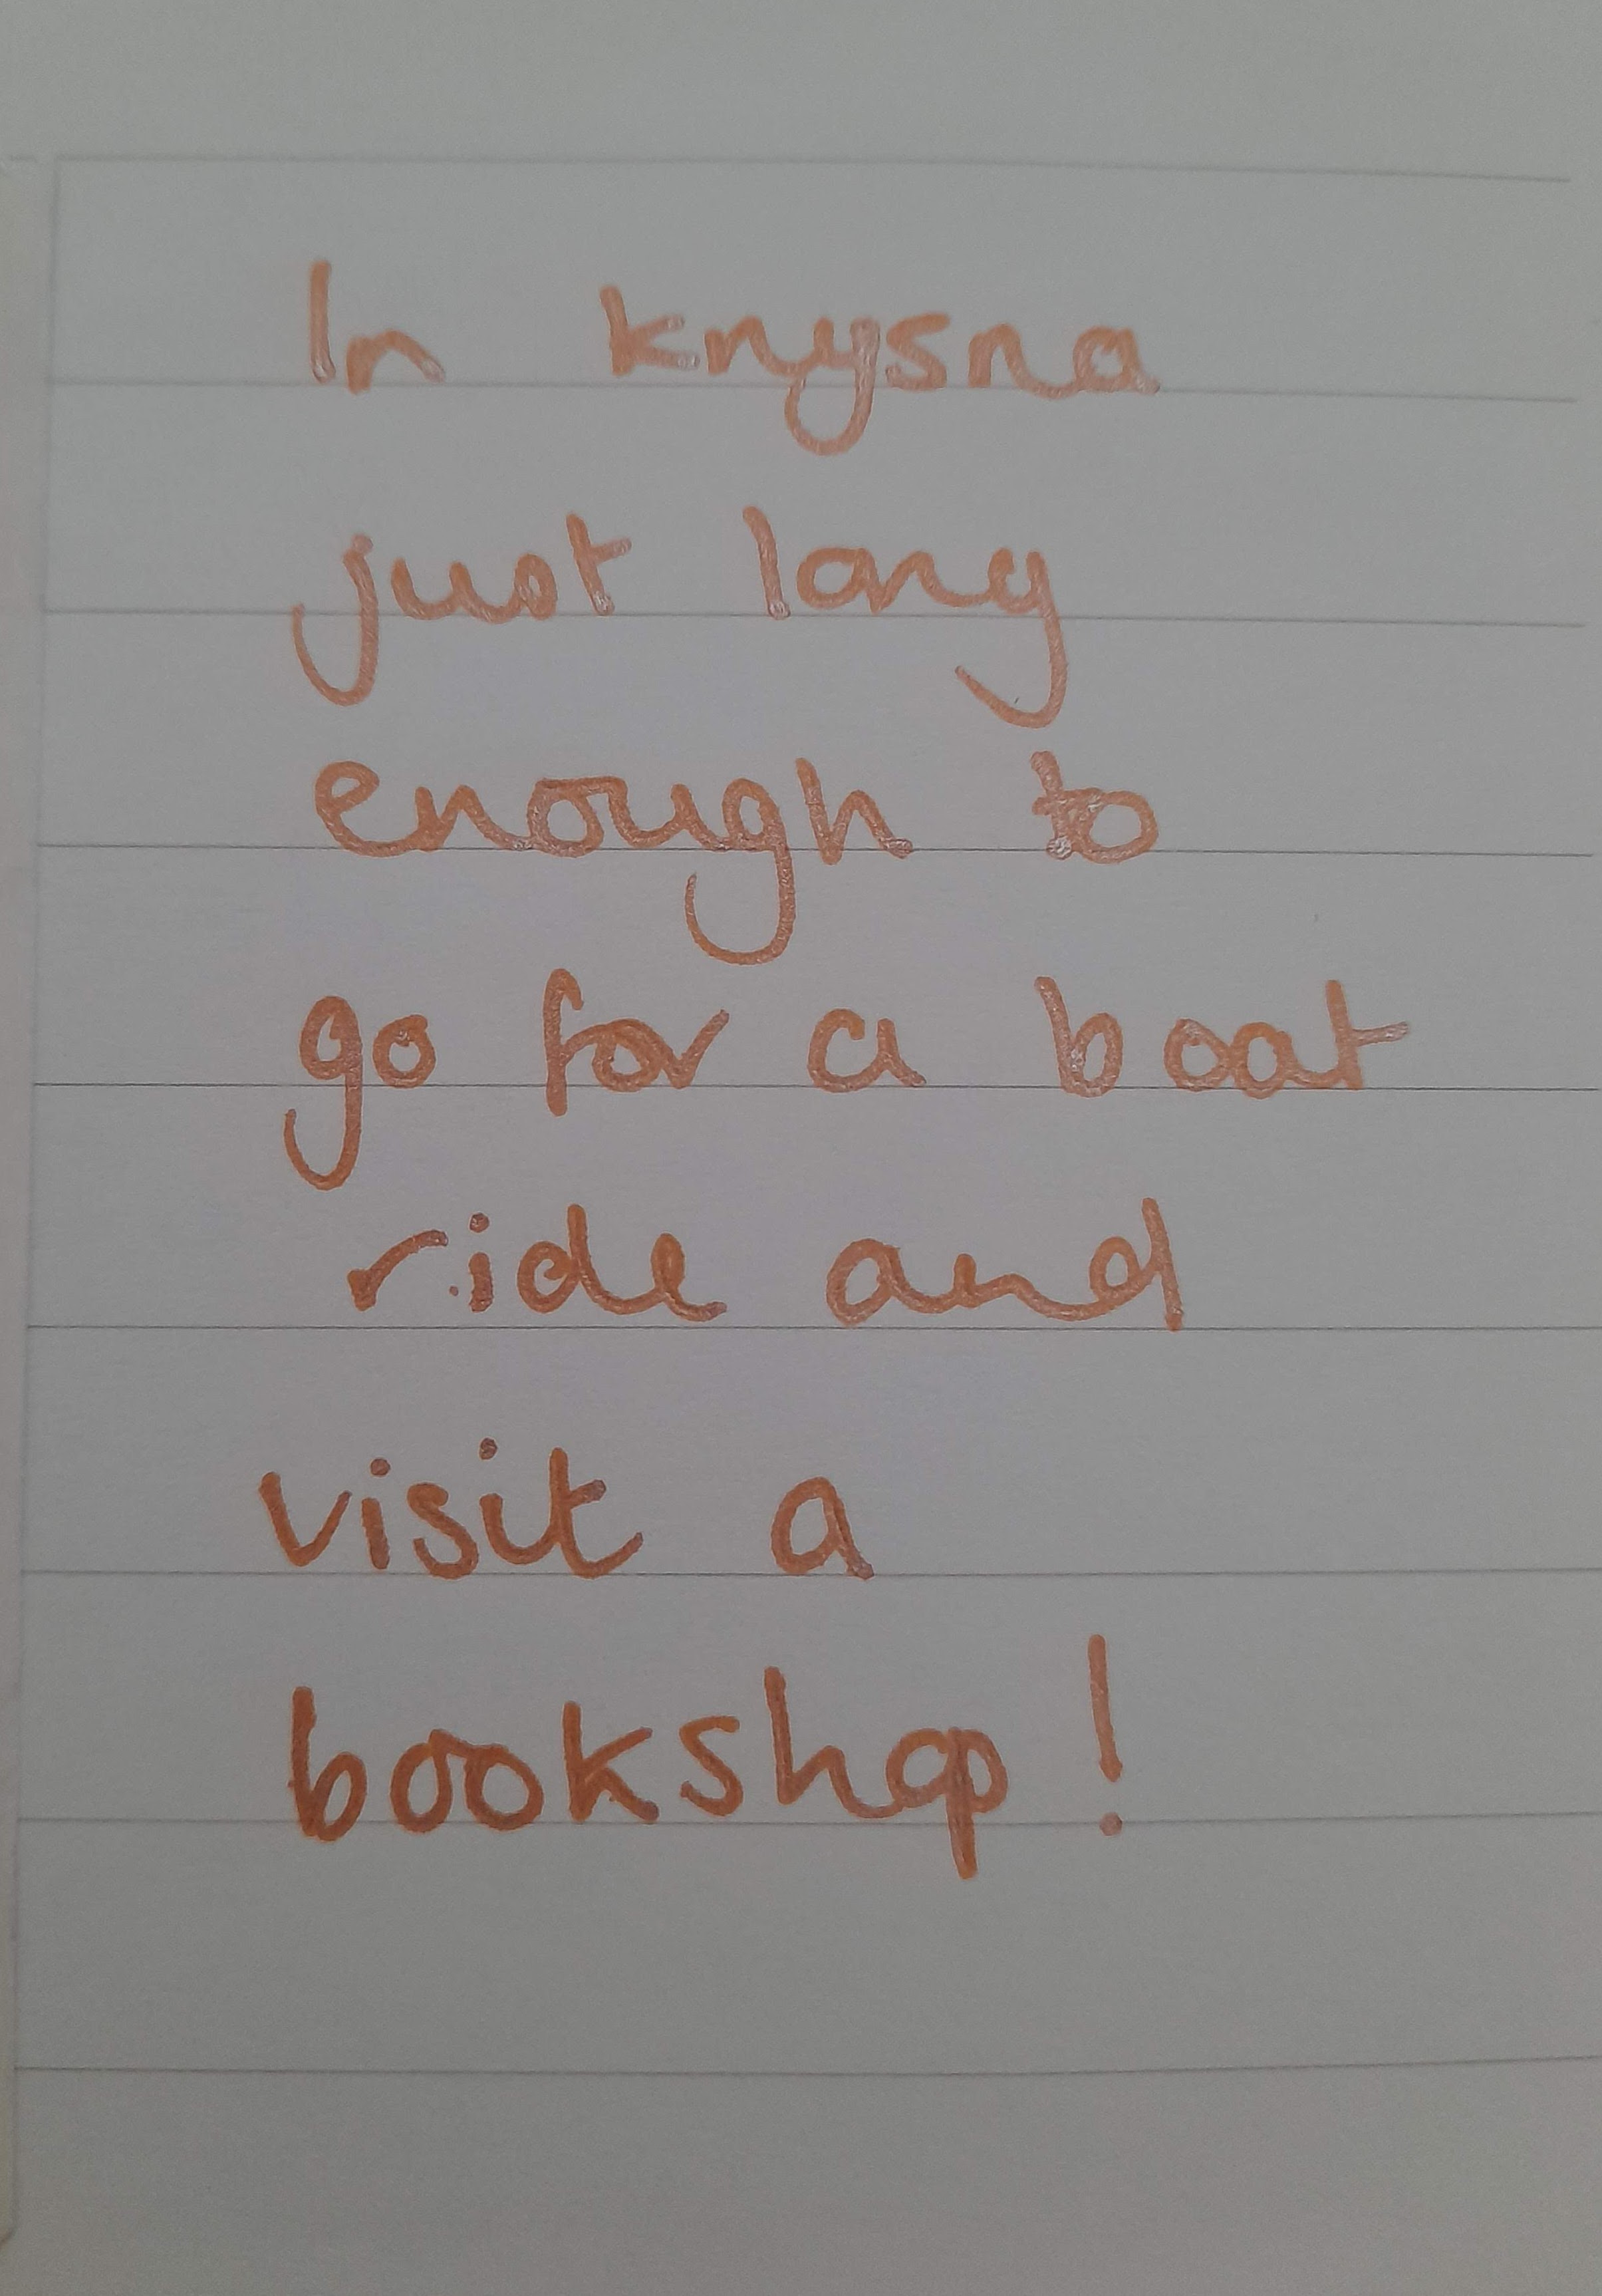 In knysna
just long
enough to
go for a boat
ride and
visit a
bookshop!